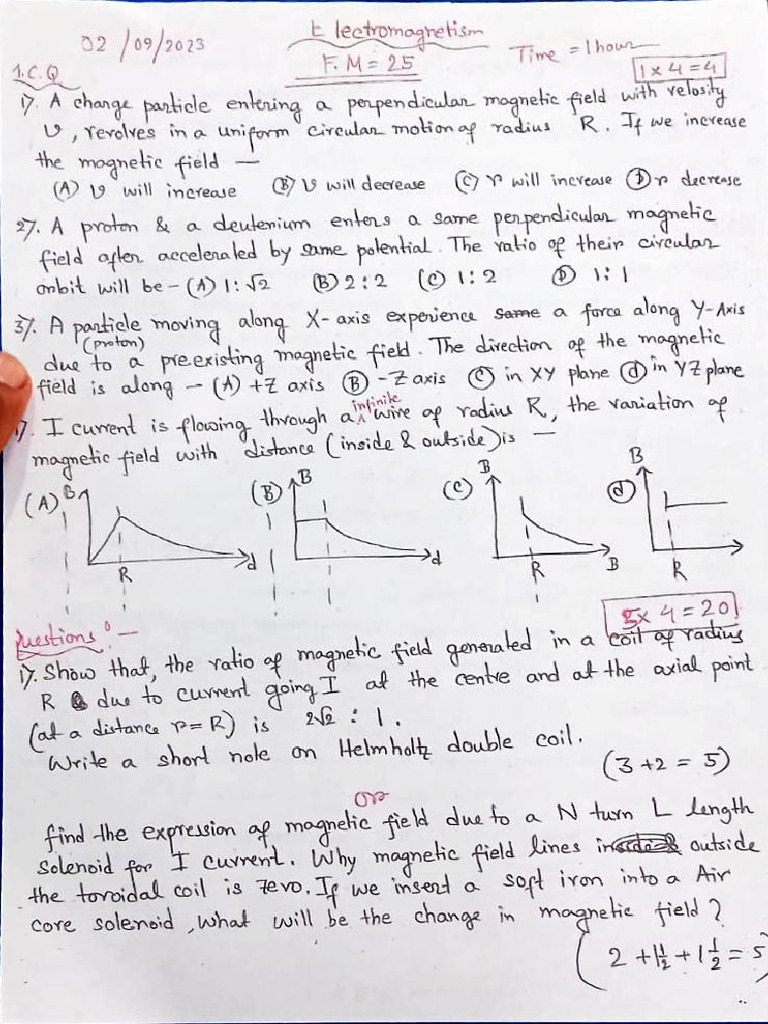 02/09/2023
Electromagnetism
F.M = 25
Time = 1 hour
M.C.Q
1 x 4 = 4
1). A change particle entering a perpendicular magnetic field with velosity
v, revolves in a uniform circular motion of radius R. If we increase
the magnetic field —
(A) v will increase (B) v will decrease (C) r will increase (D) r decrease
2). A proton & a deutenium enters a same perpendicular magnetic
field after accelerated by same potential. The ratio of their circular
orbit will be - (A) 1:√2 (B) 2:2 (C) 1:2 (D) 1:1
3). A particle moving along X-axis experience same a force along Y-Axis
(proton)
due to a preexisting magnetic field. The direction of the magnetic
field is along - (A) +Z axis (B) -Z axis (C) in XY plane (d) in YZ plane
infinite
). I current is flowing through a wire of radius R, the variation of
magnetic field with distance (inside & outside) is —
(A) B (B) B (C) B (d) B
d d B
R R R
Questions :—
5 x 4 = 20
1). Show that, the ratio of magnetic field generated in a coil of radius
R due to current going I at the centre and at the axial point
(at a distance r=R) is 2√2 : 1.
Write a short note on Helmholtz double coil.
(3+2 = 5)
or
find the expression of magnetic field due to a N turn L length
solenoid for I current. Why magnetic field lines outside
the toroidal coil is zero. If we insert a soft iron into a Air
core solenoid, what will be the change in magnetic field?
(2 + 1½ + 1½ = 5)